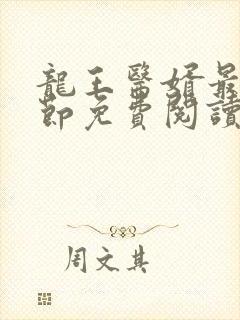 龍王醫婿最
節免費閱讀
周文其